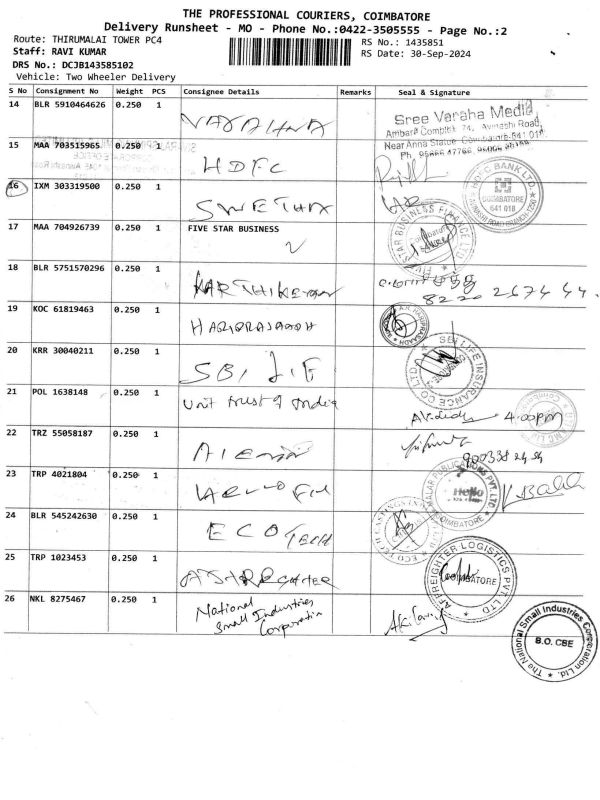 THE PROFESSIONAL COURIERS, COIMBATORE
Delivery Runsheet - MO - Phone No.:0422-3505555 - Page No.:2
Route: THIRUMALAI TOWER PC4
RS No.: 1435851
Staff: RAVI KUMAR
RS Date: 30-Sep-2024
DRS No.: DCJB143585102
Vehicle: Two Wheeler Delivery
S No Consignment No Weight PCS Consignee Details Remarks Seal & Signature
14 BLR 5910464626 0.250 1
Sree Varaha Media
Ambara Complex, 74, Avinashi Road,
Near Anna Statue, Coimbatore-641 018
15 MAA 703515965 0.250 1 HDFC
HDFC BANK LTD.
COIMBATORE
641 018
16 IXM 303319500 0.250 1 SWETHA
17 MAA 704926739 0.250 1 FIVE STAR BUSINESS
FIVE STAR BUSINESS FINANCE
18 BLR 5751570296 0.250 1 KARTHIKEYAN
8220 2674 44.
19 KOC 61819463 0.250 1 HARIPRASAADH
20 KRR 30040211 0.250 1 SBI LIF
SBI LIFE INSURANCE CO LTD
21 POL 1638148 0.250 1 Unit trust of India
4:00pm
22 TRZ 55058187 0.250 1
23 TRP 4021804 0.250 1
MALAR PUBLICATIONS PVT. LTD.
Hello
COIMBATORE
24 BLR 545242630 0.250 1 ECO Tech
25 TRP 1023453 0.250 1
AFFREIGHTER LOGISTICS PVT. LTD
COIMBATORE
26 NKL 8275467 0.250 1 National
Small Industries
Corporation
The National Small Industries Corporation Ltd.
B.O. CBE